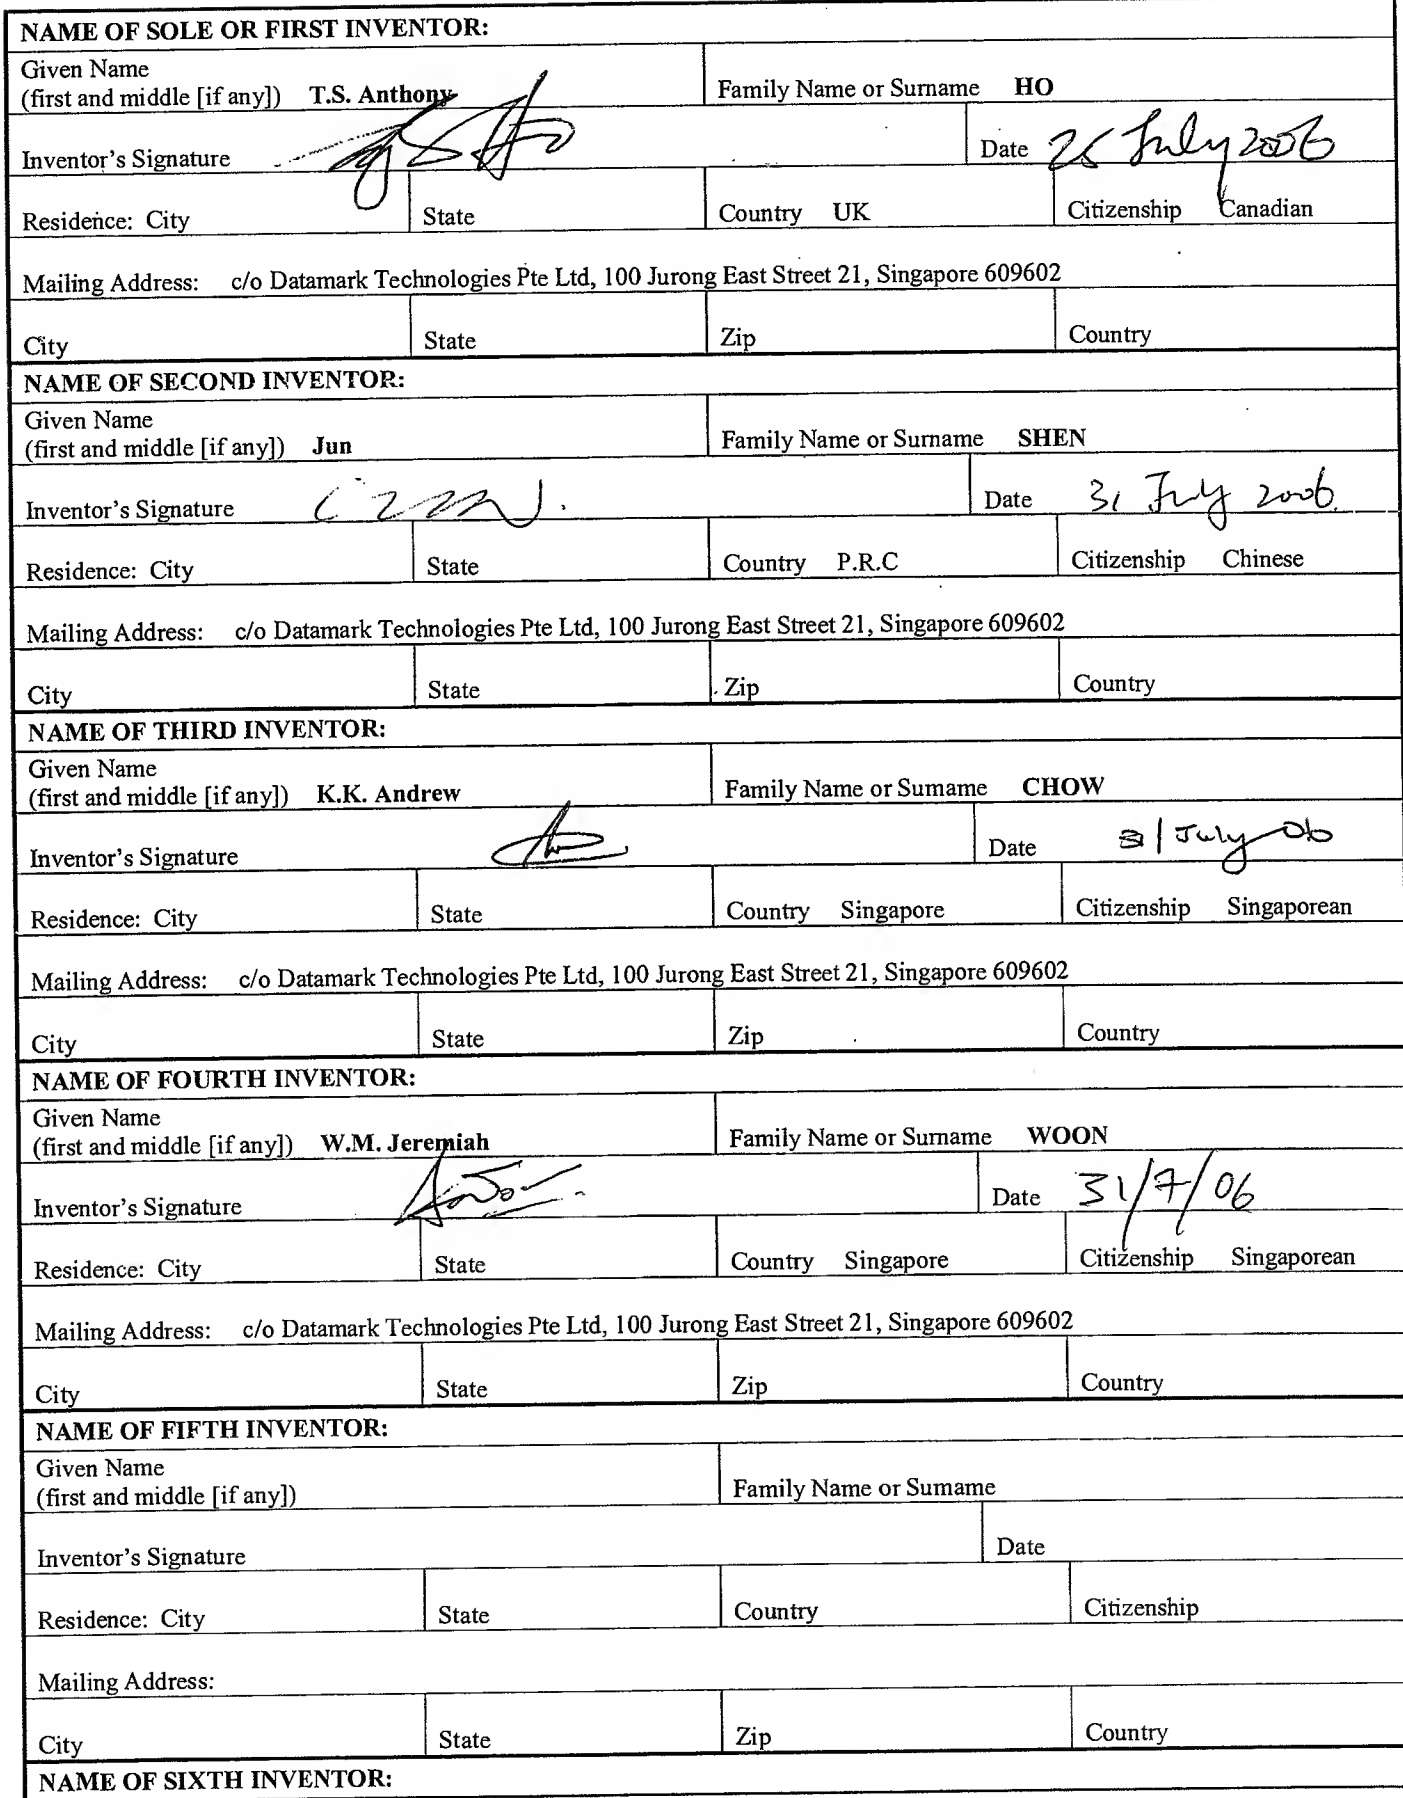 NAME OF SOLE OR FIRST INVENTOR:
Given Name
(first and middle [if any]) T.S. Anthony Family Name or Surname HO
Inventor's Signature Date July 2006
Residence: City State Country UK Citizenship Canadian
Mailing Address: c/o Datamark Technologies Pte Ltd, 100 Jurong East Street 21, Singapore 609602
City State Zip Country
NAME OF SECOND INVENTOR:
Given Name
(first and middle [if any]) Jun Family Name or Surname SHEN
Inventor's Signature Date 31 July 2006
Residence: City State Country P.R.C Citizenship Chinese
Mailing Address: c/o Datamark Technologies Pte Ltd, 100 Jurong East Street 21, Singapore 609602
City State Zip Country
NAME OF THIRD INVENTOR:
Given Name
(first and middle [if any]) K.K. Andrew Family Name or Surname CHOW
Inventor's Signature Date 31 July 06
Residence: City State Country Singapore Citizenship Singaporean
Mailing Address: c/o Datamark Technologies Pte Ltd, 100 Jurong East Street 21, Singapore 609602
City State Zip Country
NAME OF FOURTH INVENTOR:
Given Name
(first and middle [if any]) W.M. Jeremiah Family Name or Surname WOON
Inventor's Signature Date 31/7/06
Residence: City State Country Singapore Citizenship Singaporean
Mailing Address: c/o Datamark Technologies Pte Ltd, 100 Jurong East Street 21, Singapore 609602
City State Zip Country
NAME OF FIFTH INVENTOR:
Given Name
(first and middle [if any]) Family Name or Surname
Inventor's Signature Date
Residence: City State Country Citizenship
Mailing Address:
City State Zip Country
NAME OF SIXTH INVENTOR: